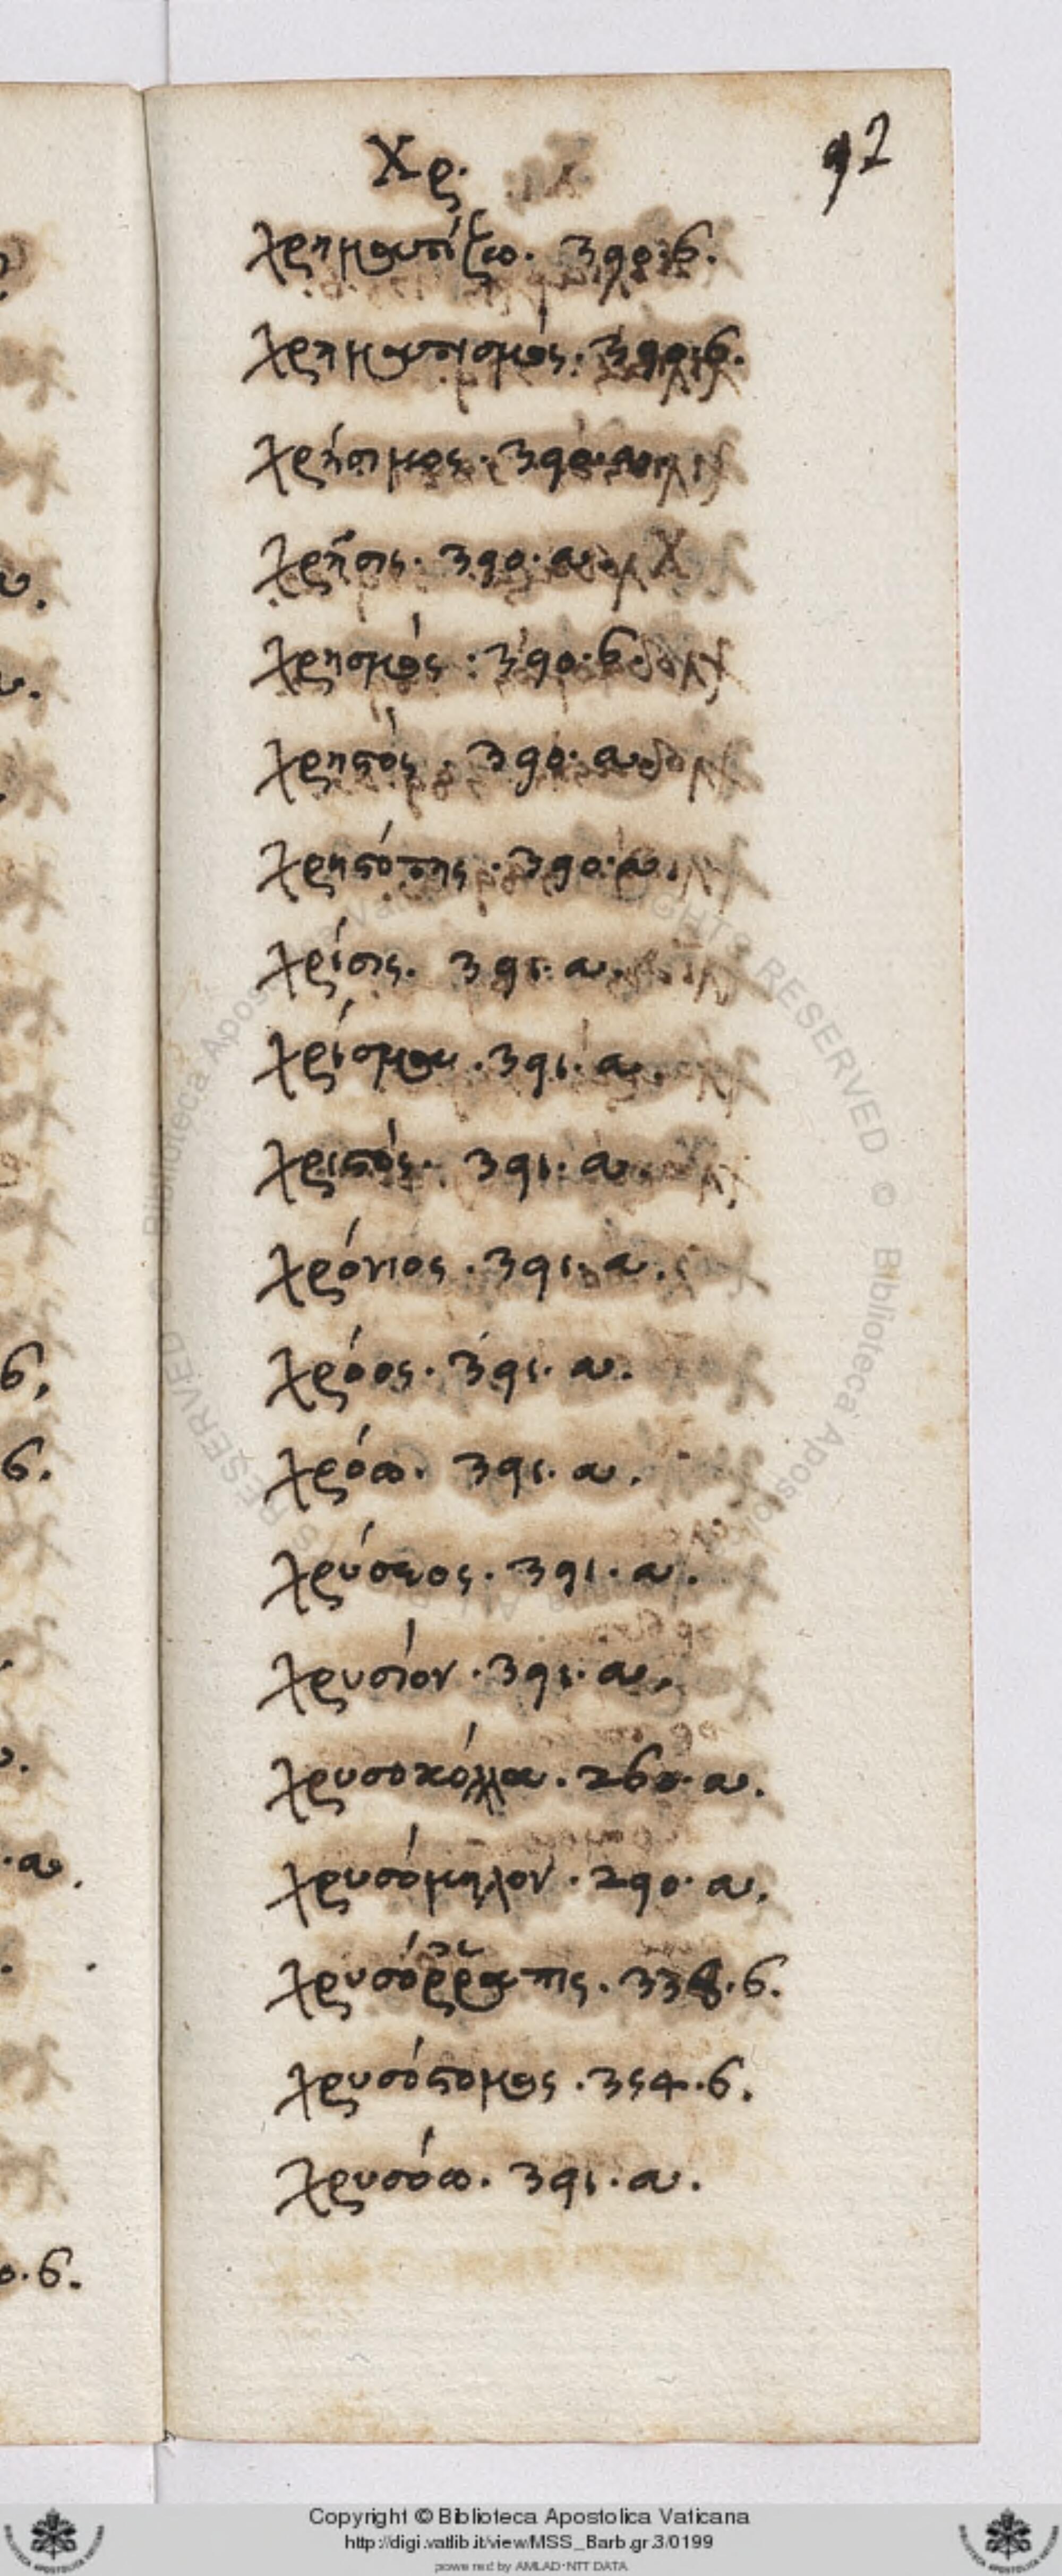 92
Χρ.
χρηματίζω. 390. β.
χρηματισμός. 390. β.
χρήσιμος. 390. α.
χρῆσις. 390. α.
χρησμός. 390. β.
χρηστός. 390. α.
χρηστότης. 390. α.
χρίσις. 391. α.
χρίσμα. 391. α.
χριστός. 391. α.
χρόνιος. 391. α.
χρόος. 391. α.
χρόω. 391. α.
χρύσεος. 391. α.
χρυσίον. 391. α.
χρυσοκόλλα. 260. α.
χρυσόμηλον. 290. α.
χρυσόρραπις. 338. β.
χρυσόστομος. 354. β.
χρυσόω. 391. α.
Copyright © Biblioteca Apostolica Vaticana
http://digi.vatlib.it/view/MSS_Barb.gr.3/0199
powered by AMLAD-NTT DATA